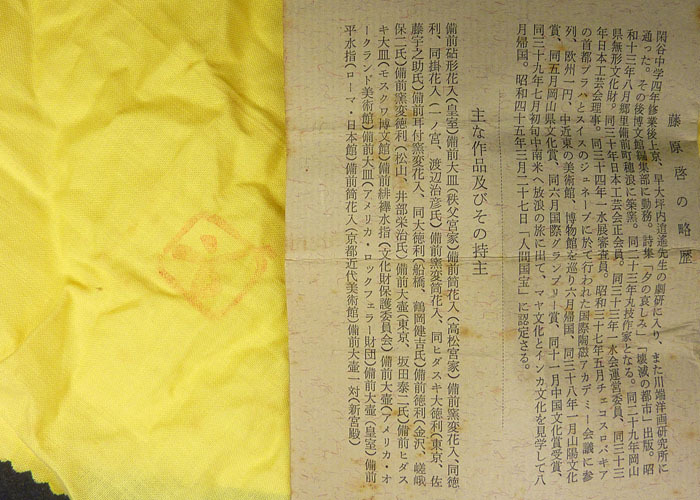 藤原啓の略歴
閑谷中学四年修業後上京、早大坪内逍遙先生の劇研に入り、また川端洋画研究所に
通った。その後博文館編集部に勤務。詩集「夕の哀しみ」「壊滅の都市」出版。昭
和十三年八月郷里備前町穂浪に築窯。同二十三年丸技作家となる。同二十九年岡山
県無形文化財。同三十年日本工芸会正会員。同三十三年一水会運営委員、同三十三
年日本工芸会理事。同三十四年一水展審査員。昭和三十七年五月チェコスロバキア
の首都プラハとスイスのジュネーブに於て行われた国際陶磁アカデミー会議に参
列、欧州一円、中近東の美術館、博物館を巡り六月帰国、同三十八年一月山陽文化
賞、同五月岡山県文化賞、同六月国際グランプリー賞、同十一月中国文化賞受賞、
同三十九年七月初旬中南米へ放浪の旅に出て、マヤ文化とインカ文化を見学して八
月帰国。昭和四十五年三月二十七日「人間国宝」に認定さる。
主な作品及びその持主
備前砧形花入(皇室)備前大皿(秩父宮家)備前筒花入(高松宮家)備前窯変花入、同徳
利、同掛花入(一ノ宮、渡辺治彦氏)備前窯変筒花入、同ヒダスキ大徳利(東京、佐
藤宇之助氏)備前耳付窯変花入、同大徳利(船橋、鶴岡健吉氏)備前徳利(金沢、嵯峨
保二氏)備前窯変徳利(松山、井部栄治氏)備前大壷(東京、坂田泰二氏)備前ヒダス
キ大皿(モスクワ博物館)備前緋襷水指(文化財保護委員会)備前大壷(アメリカ・オ
ークランド美術館)備前大皿(アメリカ・ロックフェラー財団)備前大壷(皇室)備前
平水指(ローマ・日本館)備前筒花入(京都近代美術館)備前大壷一対(新宮殿)